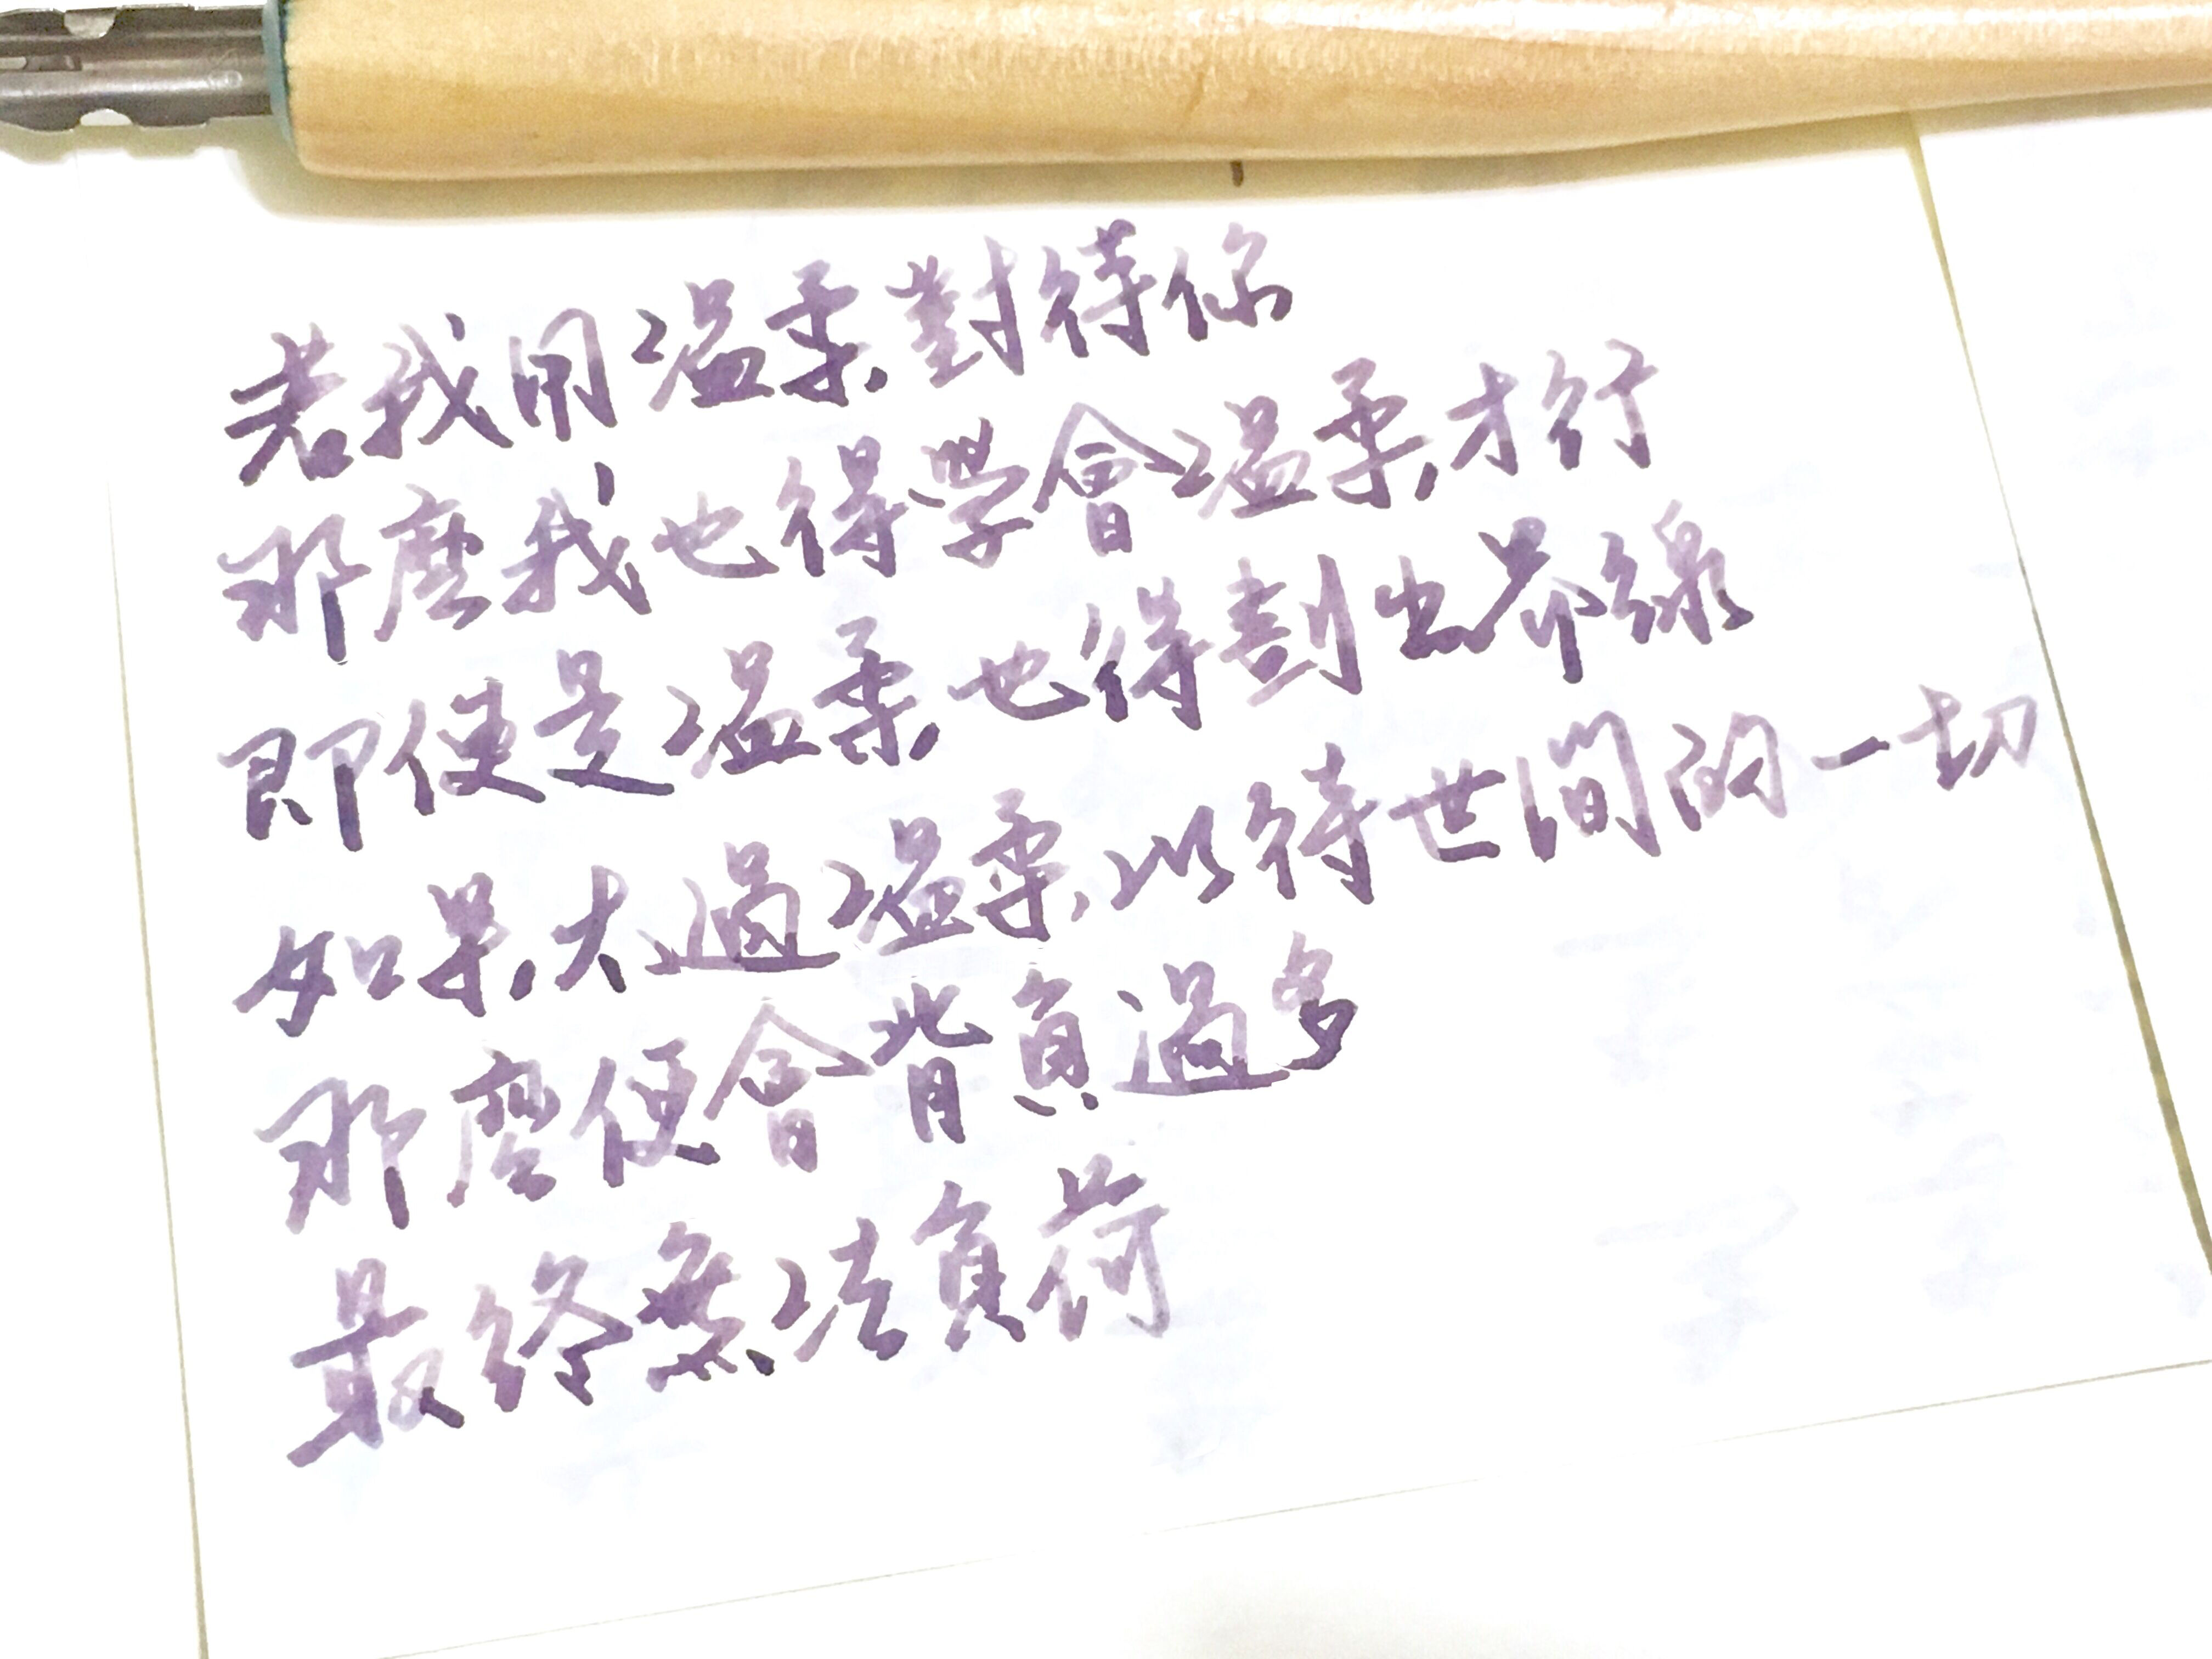 若我用溫柔對待你
那麼我也得學會溫柔才行
即使是溫柔也得劃出界線
如果太過溫柔以待世間的一切
那麼便會背負過多
最終無法負荷